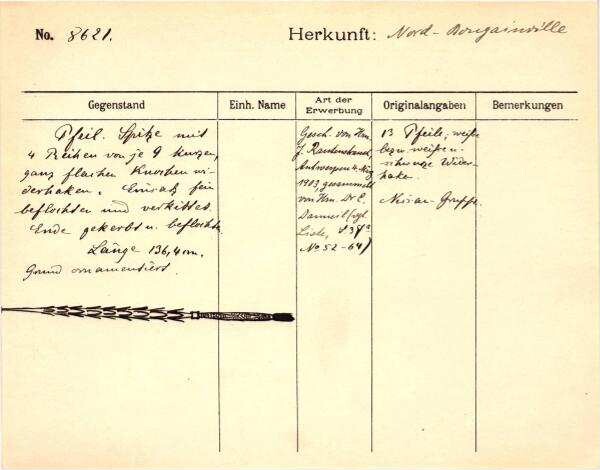 No. 8621.
Herkunft: Nord-Bougainville
Gegenstand
Einh. Name
Art der Erwerbung
Originalangaben
Bemerkungen
Pfeil. Spitze mit
4 Reihen von je 9 kurzen,
ganz flachen Knochenwi-
derhaken. Einsatz fein
beflochten und verkittet.
Ende gekerbt u. beflochten
Länge 136,4 cm.
Grund ornamentiert.
Gesch. von Hrn.
J. Rautenstrauch,
Antwerpen 4. März
1903, gesammelt
von Hrn. Dr. E.
Liste,
No 52-64)
13 Pfeile, weiße
bezw. weißen u.
schwarze Wider-
hake.